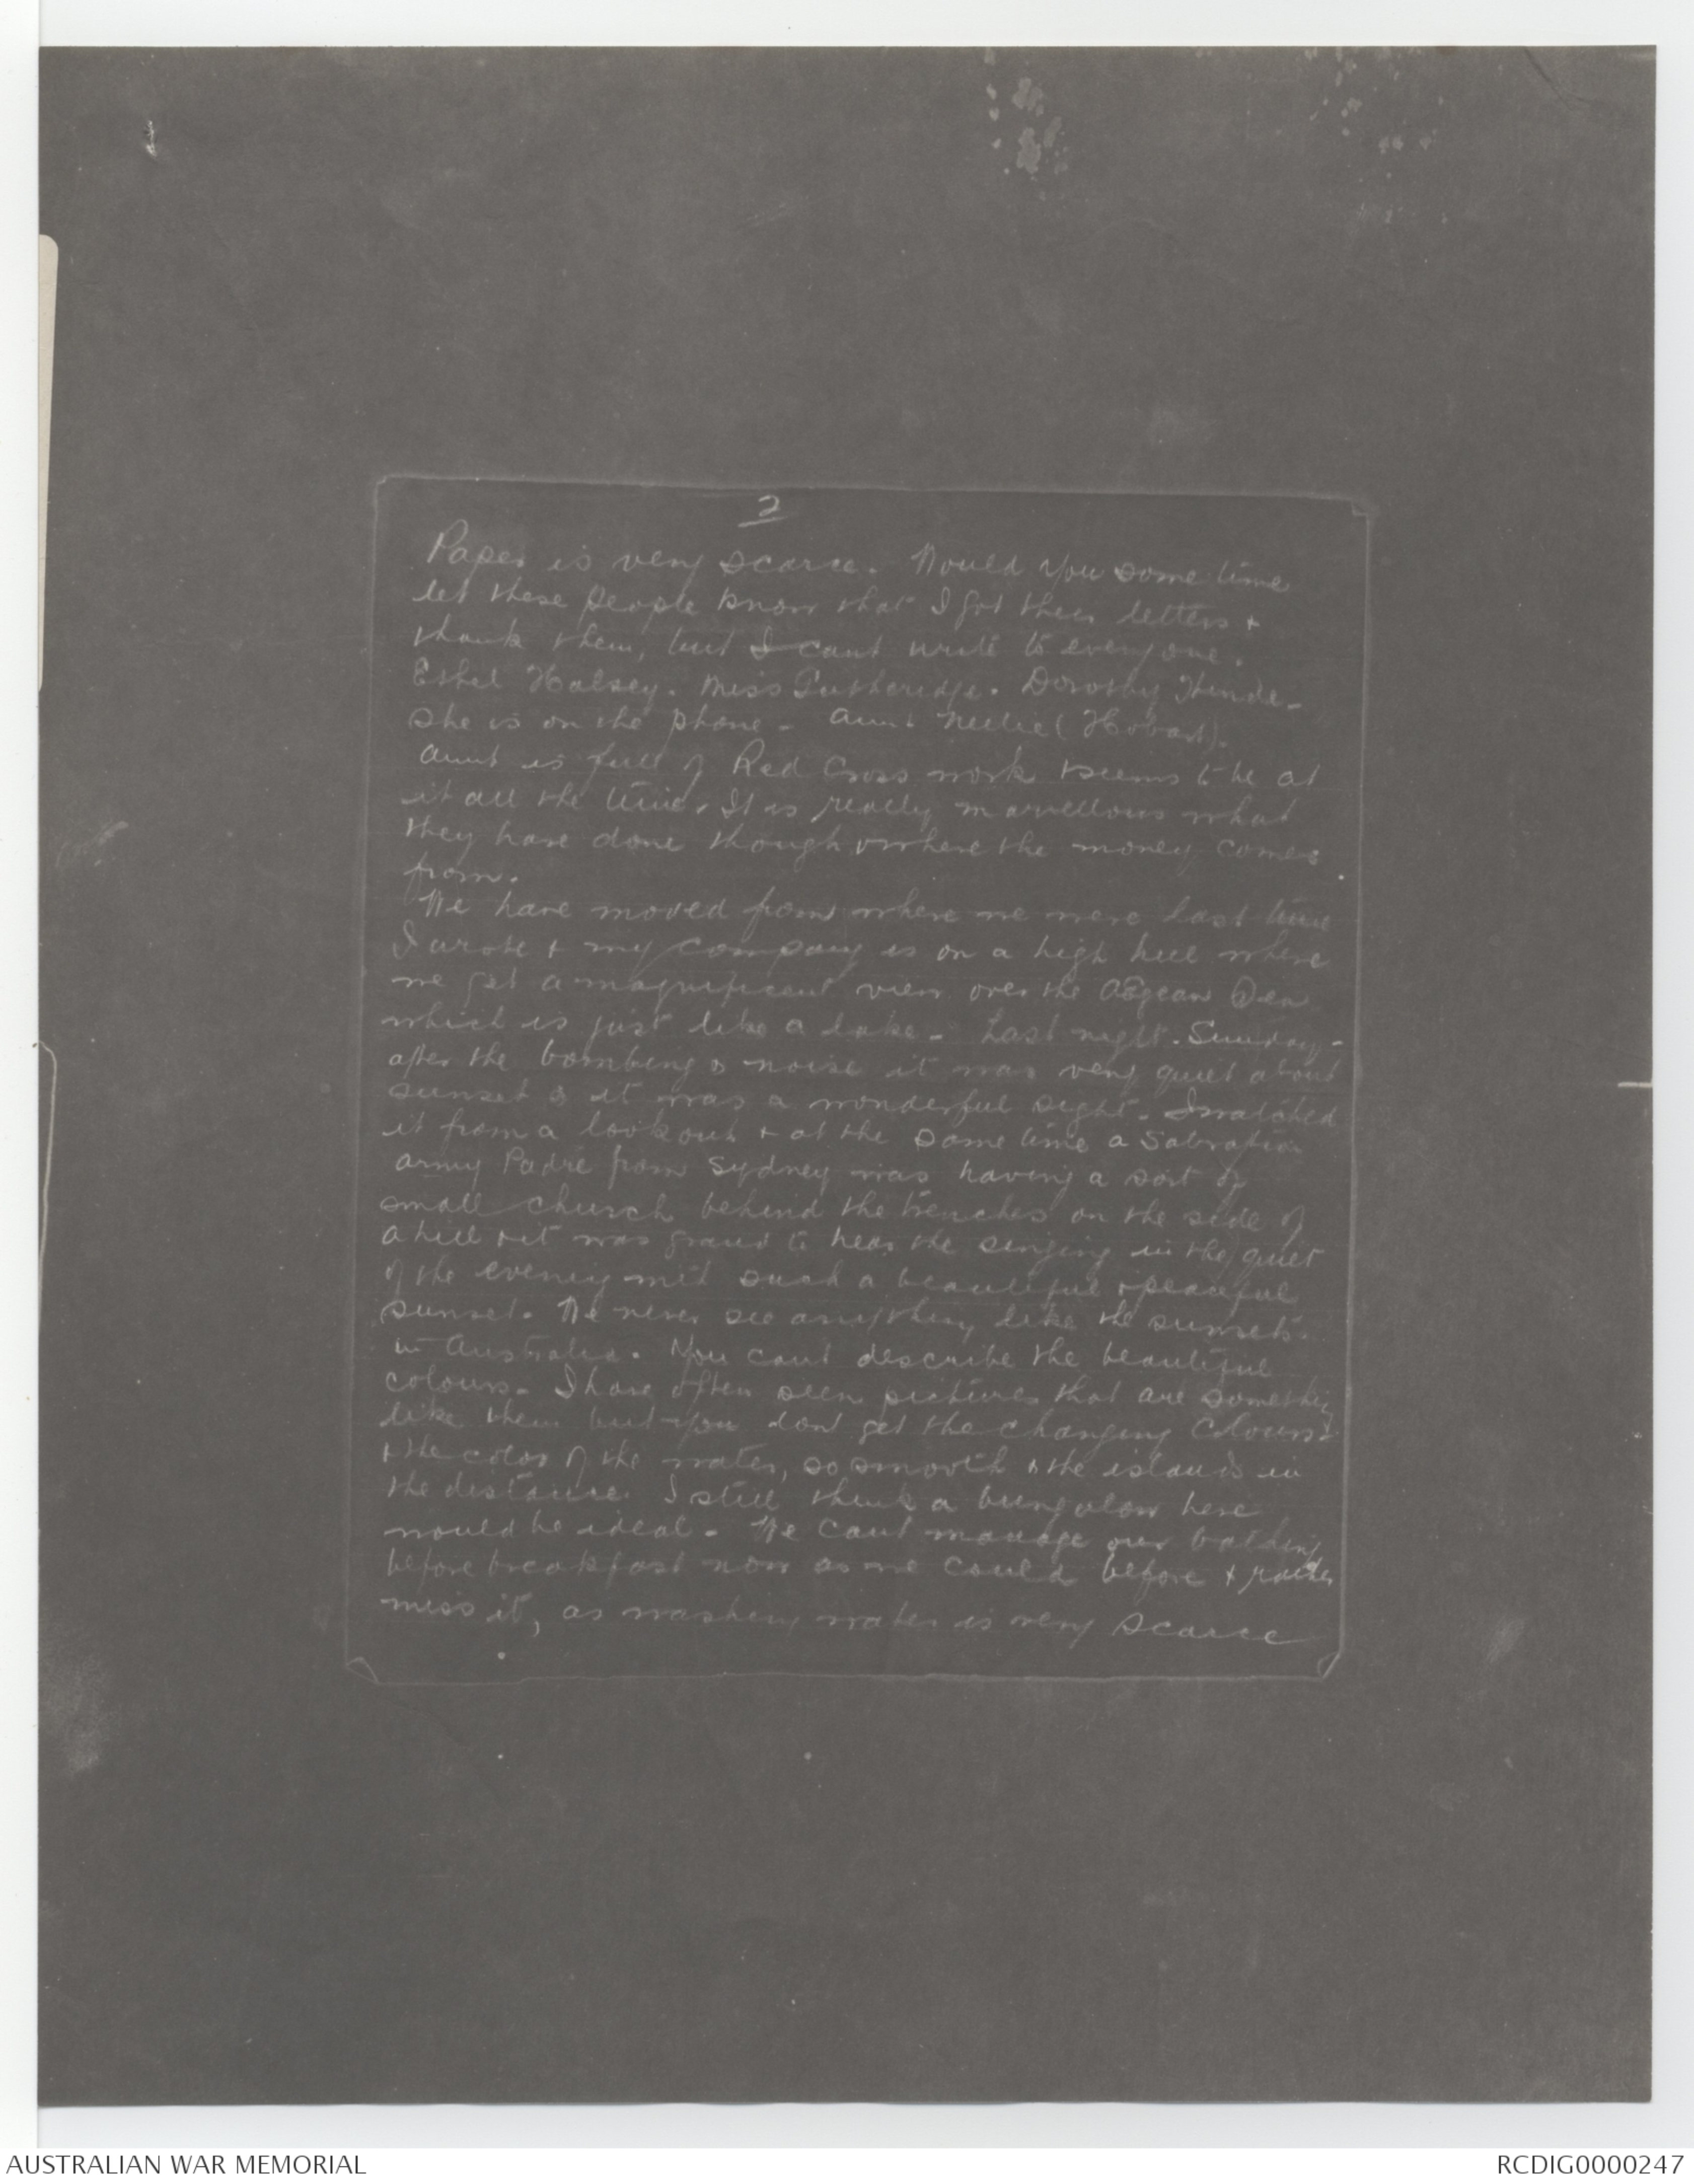 2
Paper is very scarce. Would you some time
let these people know that I got their letters &
thank them, but I cant write to everyone.
Ethel Halsey. Miss Gutheridge. Dorothy Hinde -
she is on the phone - Aunt Nellie (Hobart).
Aunt is full of Red Cross work & seems to be at
it all the time. It is really marvellous what
they have done though where the money comes
from.
We have moved from where we were last time
I wrote & my company is on a high hill where
we get a magnificent view over the Aegean Sea
which is just like a lake - Last night - Sunday -
after the bombing & noise it was very quiet about
sunset & it was a wonderful sight. I watched
it from a look out & at the same time a Salvation
Army Padre from Sydney was having a sort of
small church behind the trenches on the side of
a hill & it was grand to hear the singing in the quiet
of the evening with such a beautiful & peaceful
sunset. We never see anything like the sunsets
in Australia. You cant describe the beautiful
colours. I have often seen pictures that are something
like them but you dont get the changing colours
& the color of the water, so smooth & the islands in
the distance. I still think a bungalow here
would be ideal. We cant manage our bathing
before breakfast now as we could before & rather
miss it, as washing water is very scarce
AUSTRALIAN WAR MEMORIAL
RCDIG0000247